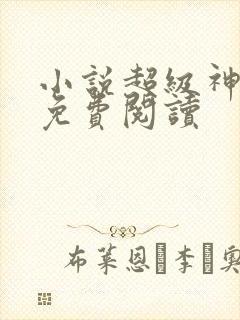 小說超級神
免費閱讀
布萊恩·李·奧